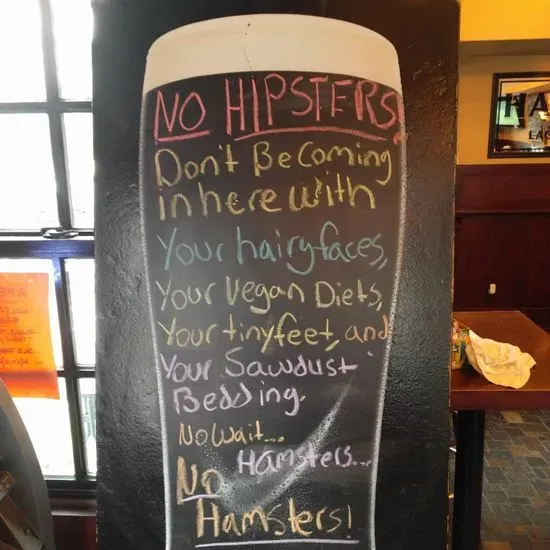 NO HIPSTERS!
Don't Be Coming
in here with
Your hairy faces,
Your Vegan Diets,
Your tiny feet, and
Your Sawdust
Bedding.
No Wait...
Hamsters...
No
Hamsters!
HA
EAS